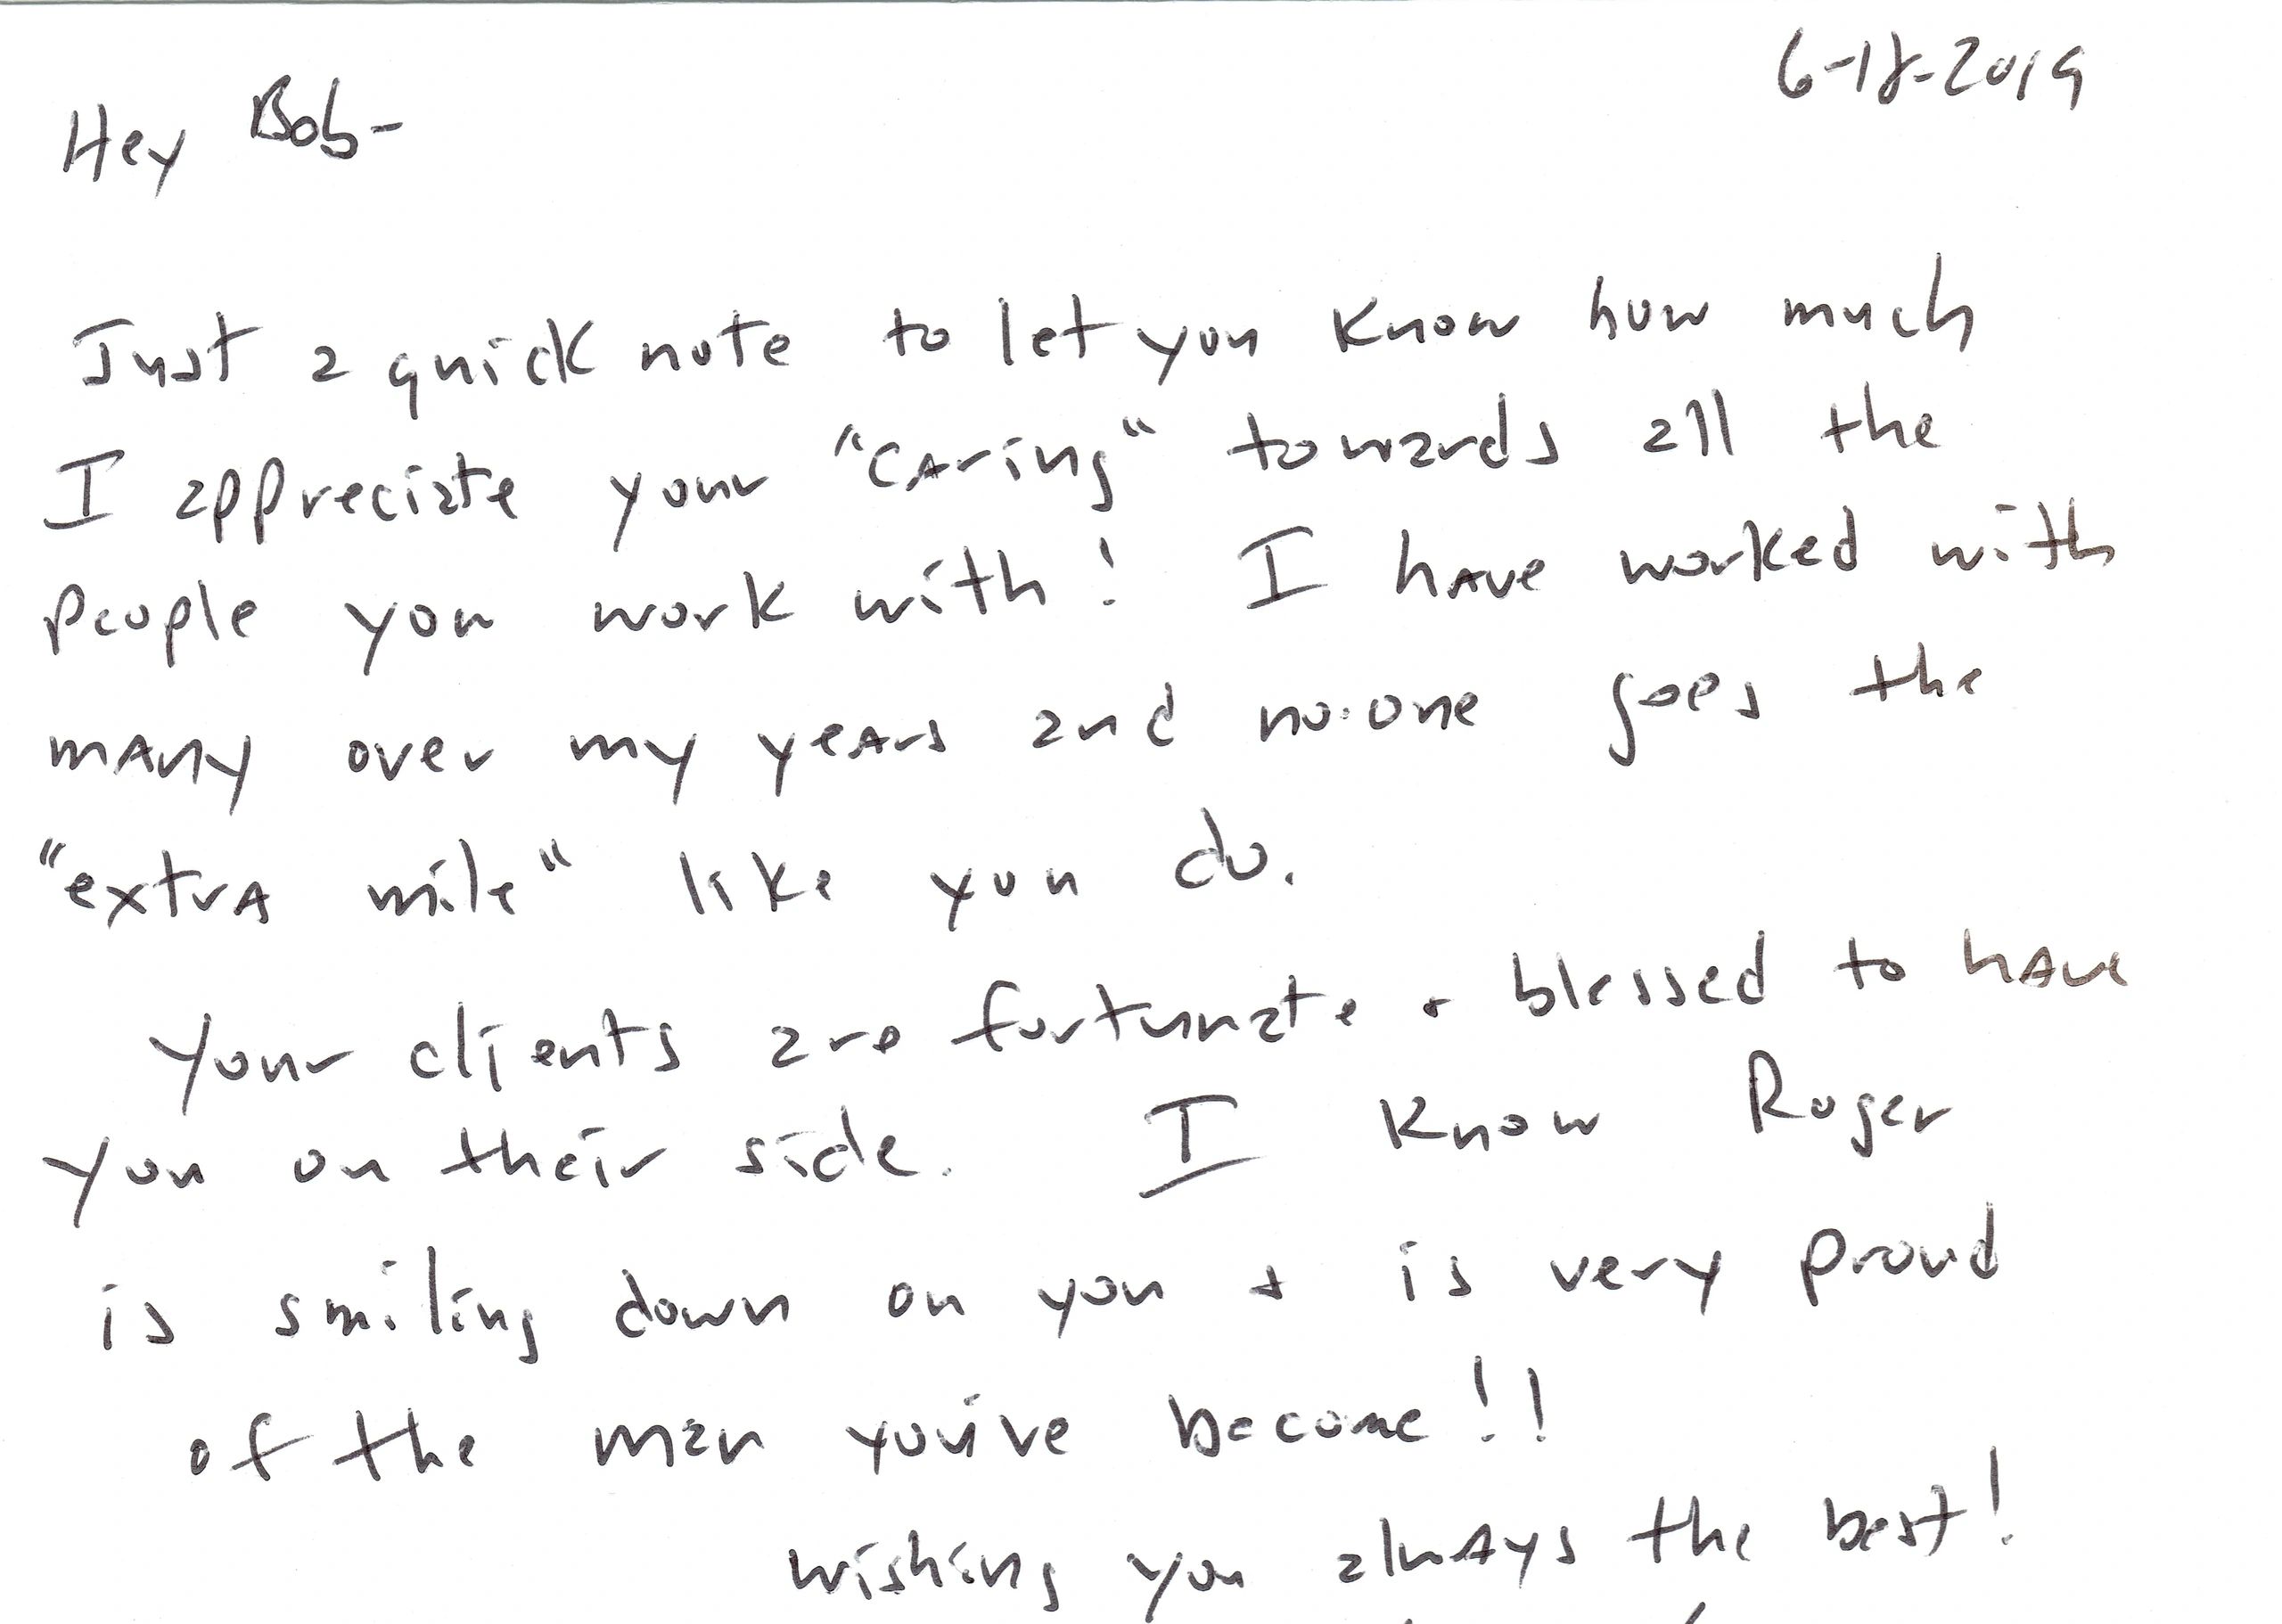 6-18-2019
Hey Bob-
Just a quick note to let you know how much
I appreciate your "caring" towards all the
people you work with! I have worked with
many over my years and no-one goes the
"extra mile" like you do.
Your clients are fortunate + blessed to have
you on their side. I know Roger
is smiling down on you + is very proud
of the man you've become!!
Wishing you always the best!